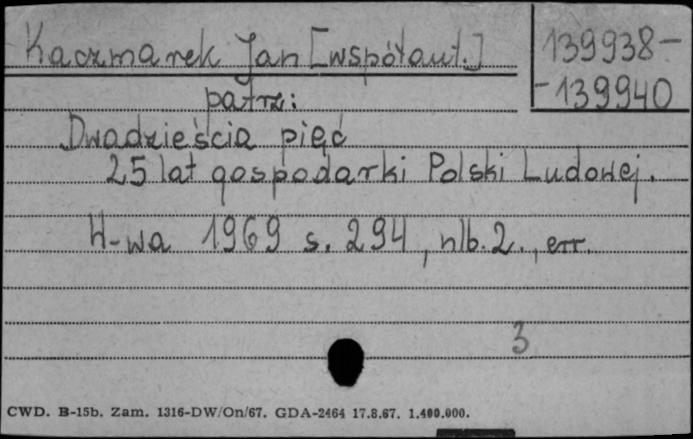 Kaczmarek Jan [współaut.]
139938-
-139940
patrz:
Dwadzieścia pięć
25 lat gospodarki Polski Ludowej.
W-wa 1969 s. 294, nlb. 2., err.
3
CWD. B-15b. Zam. 1316-DW/On/67. GDA-2464 17.8.67. 1.400.000.